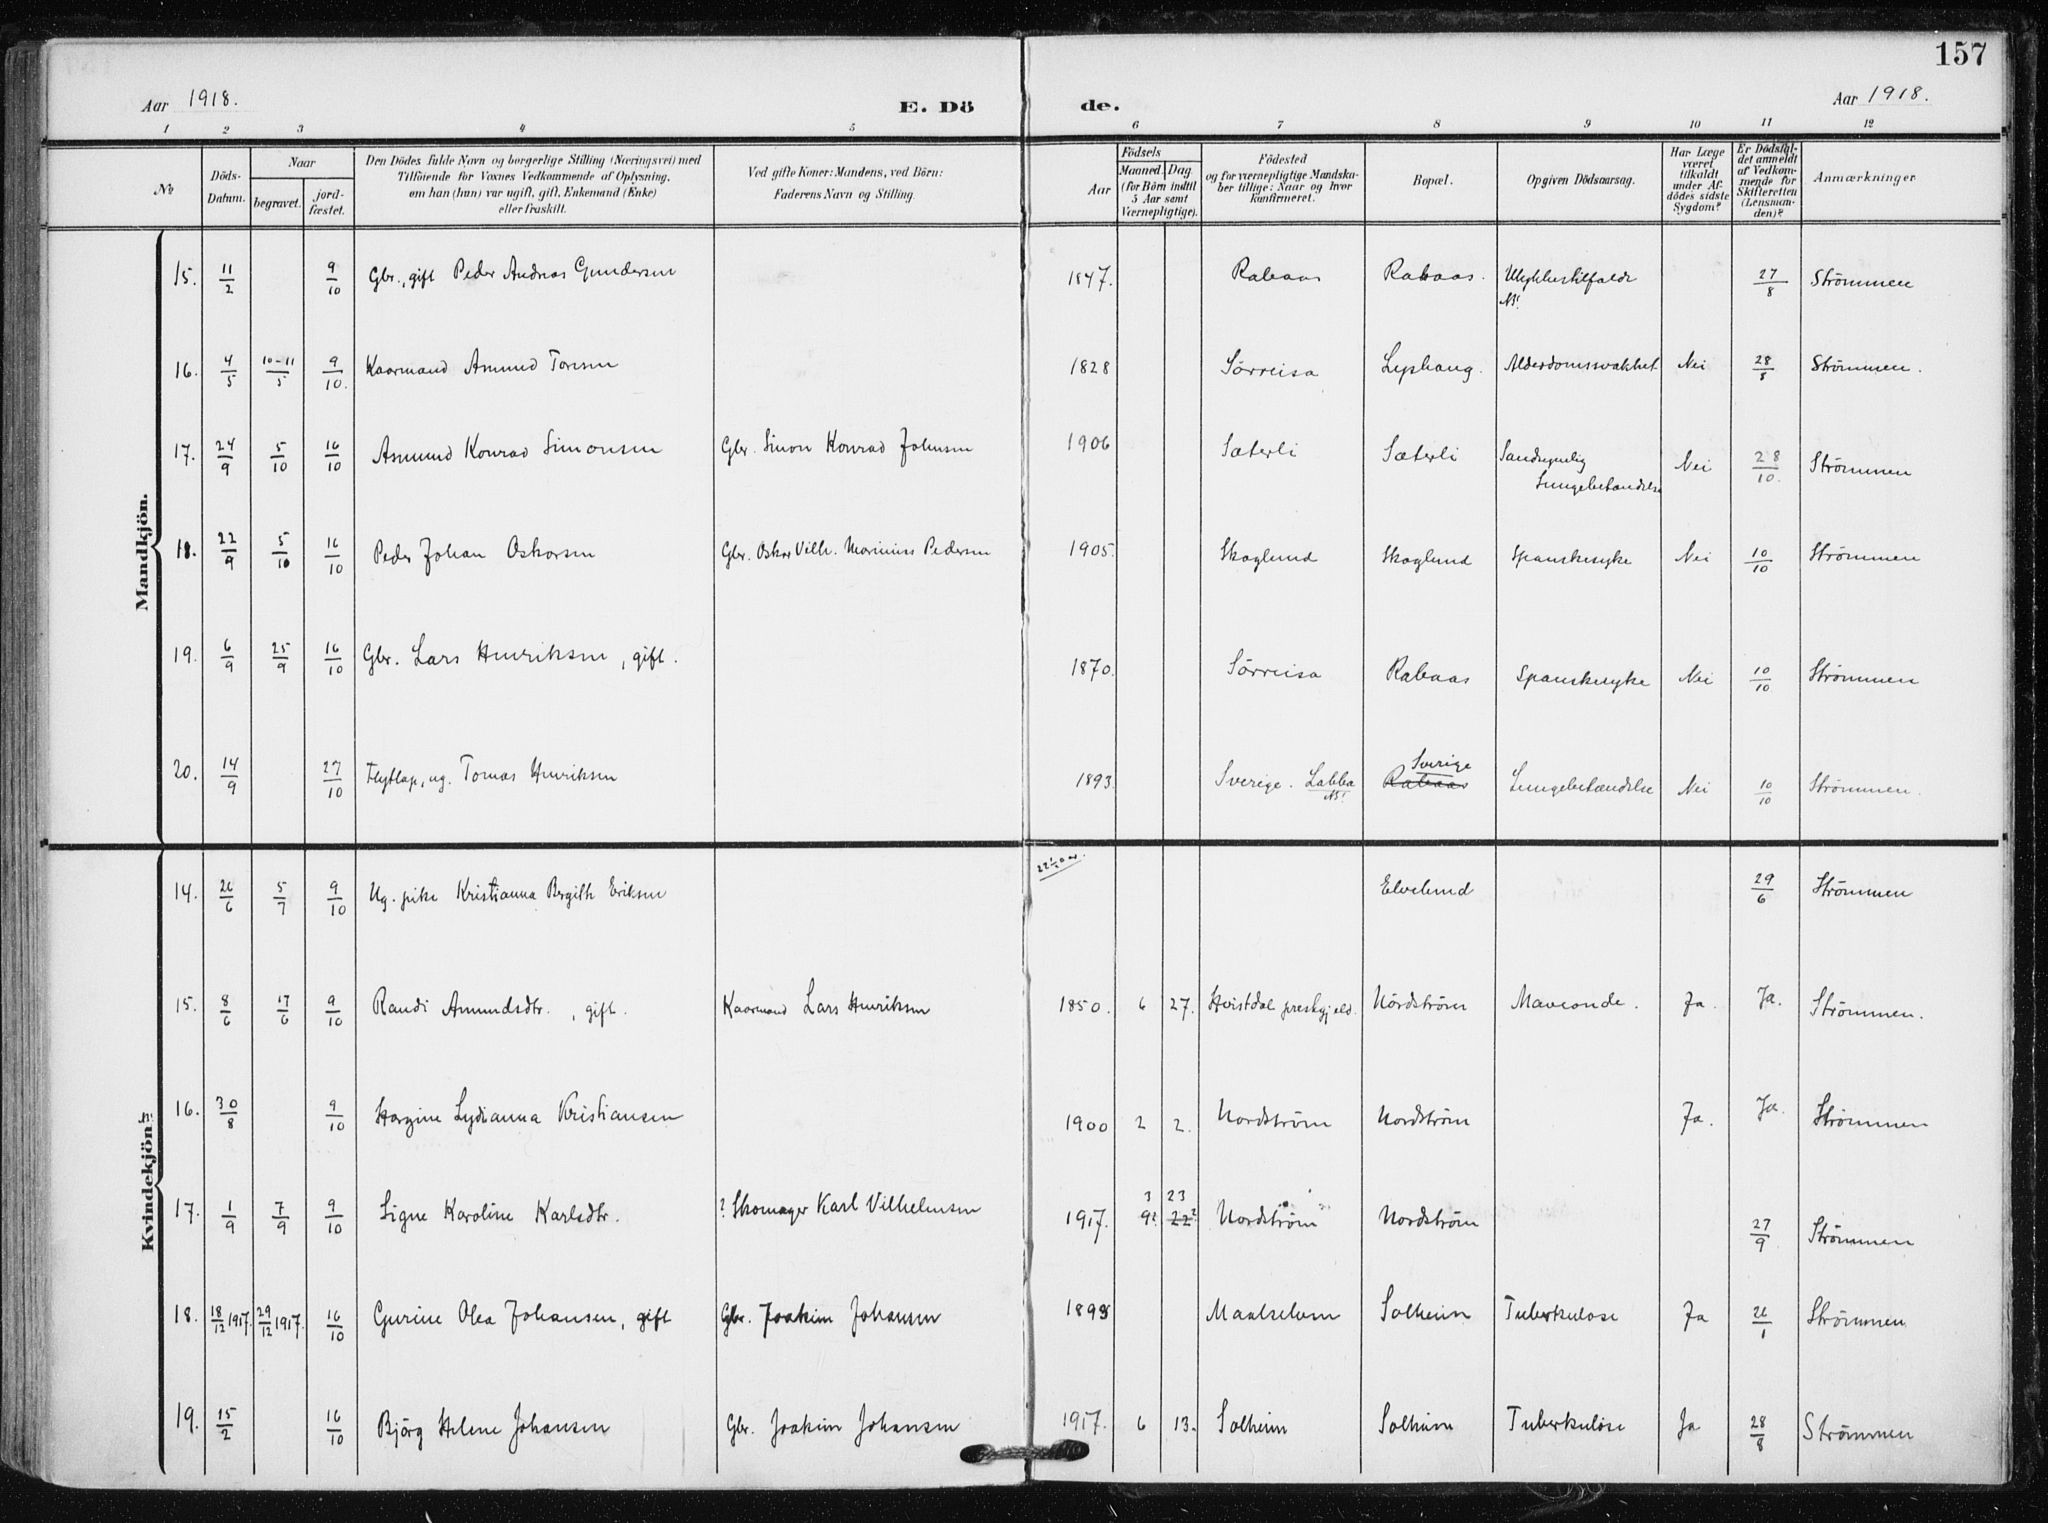 157
Aar 1918. E. Dö de. Aar 1918.
1 2 3 4 5 6 7 8 9 10 11 12
No
Döds-Datum.
Naar
begravet.
jord-fæstet.
Den Dödes fulde Navn og borgerlige Stilling (Næringsvei) med
Tilföiende for Voxnes Vedkommende af Oplysning,
om han (hun) var ugift, gift, Enkemand (Enke)
eller fraskilt.
Ved gifte Koner: Mandens, ved Börn:
Faderens Navn og Stilling.
Aar
Födsels
Maaned Dag
(for Börn indtil
5 Aar samt
Værnepligtige).
Födested
og for værnepligtige Mandska-
ber tillige: Naar og hvor
konfirmeret.
Bopæl.
Opgiven Dödsaarsag.
Har Læge
været
tilkaldt
under Af-
dödes sidste
Sygdom?
Er Dödsfal-
det anmeldt
af Vedkom-
mende for
Skifteretten
(Lensman-
den)?
Anmærkninger
Mandkjön.
15. 11/2 9/10 Gbr., gift Peder Andreas Gundersen 1847. Rabaas Rabaas. Ulykkestilfælde 27/8 Strømmen
NB!
16. 4/5 10-11/5 9/10. Kaarmand Amund Toresen 1828 Sørreisa Alderdomssvakhet Nei 28/8 Strømmen.
17. 24/9 5/10 16/10 Asmund Konrad Simonsen Gbr. Simon Konrad Johnsen 1906 Sæterli Sæterli Sandsynelig Nei 28/10. Strømmen
Lungebetændelse
18. 22/9 5/10 16/10 Peder Johan Oskarsen Gbr. Oskar Vilh. Marinius Pedersen 1905. Skoglund Skoglund Spanskesyke Nei 10/10 Strømmen
19. 6/9 25/9 16/10 Gbr. Lars Henriksen, gift. 1870. Sørreisa Rabaas Spanskesyke Nei 10/10 Strømmen
Sverige
20. 14/9 27/10 Flytlap, ug. Tomas Henriksen 1893 Sverige. Labba Rabaas Lungebetændelse Nei 10/10 Strømmen.
NB!
Kvindekjön.
14. 26/6 5/7 9/10 Ug. pike Kristianna Bergith Eriksen 22 1/2 aar. Elvelund 29/6 Strømmen
15. 8/6 17/6 9/10 Randi Amundsdtr., gift. Kaarmand Lars Henriksen 1850. 6 27. Hvistdal prestgjeld. Nordstrøm Maveonde. Ja. Ja. Strømmen.
16. 30/8 9/10 Lydianna Kristiansen 1900 2 2. Nordstrøm Nordstrøm Ja. Ja. Strømmen
3 23
17. 1/9 7/9 9/10 Signe Karoline Karlsdtr. ? Skomager Karl Vilhelmsen 1917. 9? 22? Nordstrøm Nordstrøm 27/9 Strømmen
18. 18/12 1917. 29/12 1917. 16/10 Gurine Olea Johansen, gift Gbr. Joakim Johansen Maalselven Solheim Tuberkulose Ja 26/1 Strømmen
19. 15/2 16/10 Bjørg Helene Johansen Gbr. Joakim Johansen 1917. 6 13. Solheim Solheim Tuberkulose Ja 28/8 Strømmen